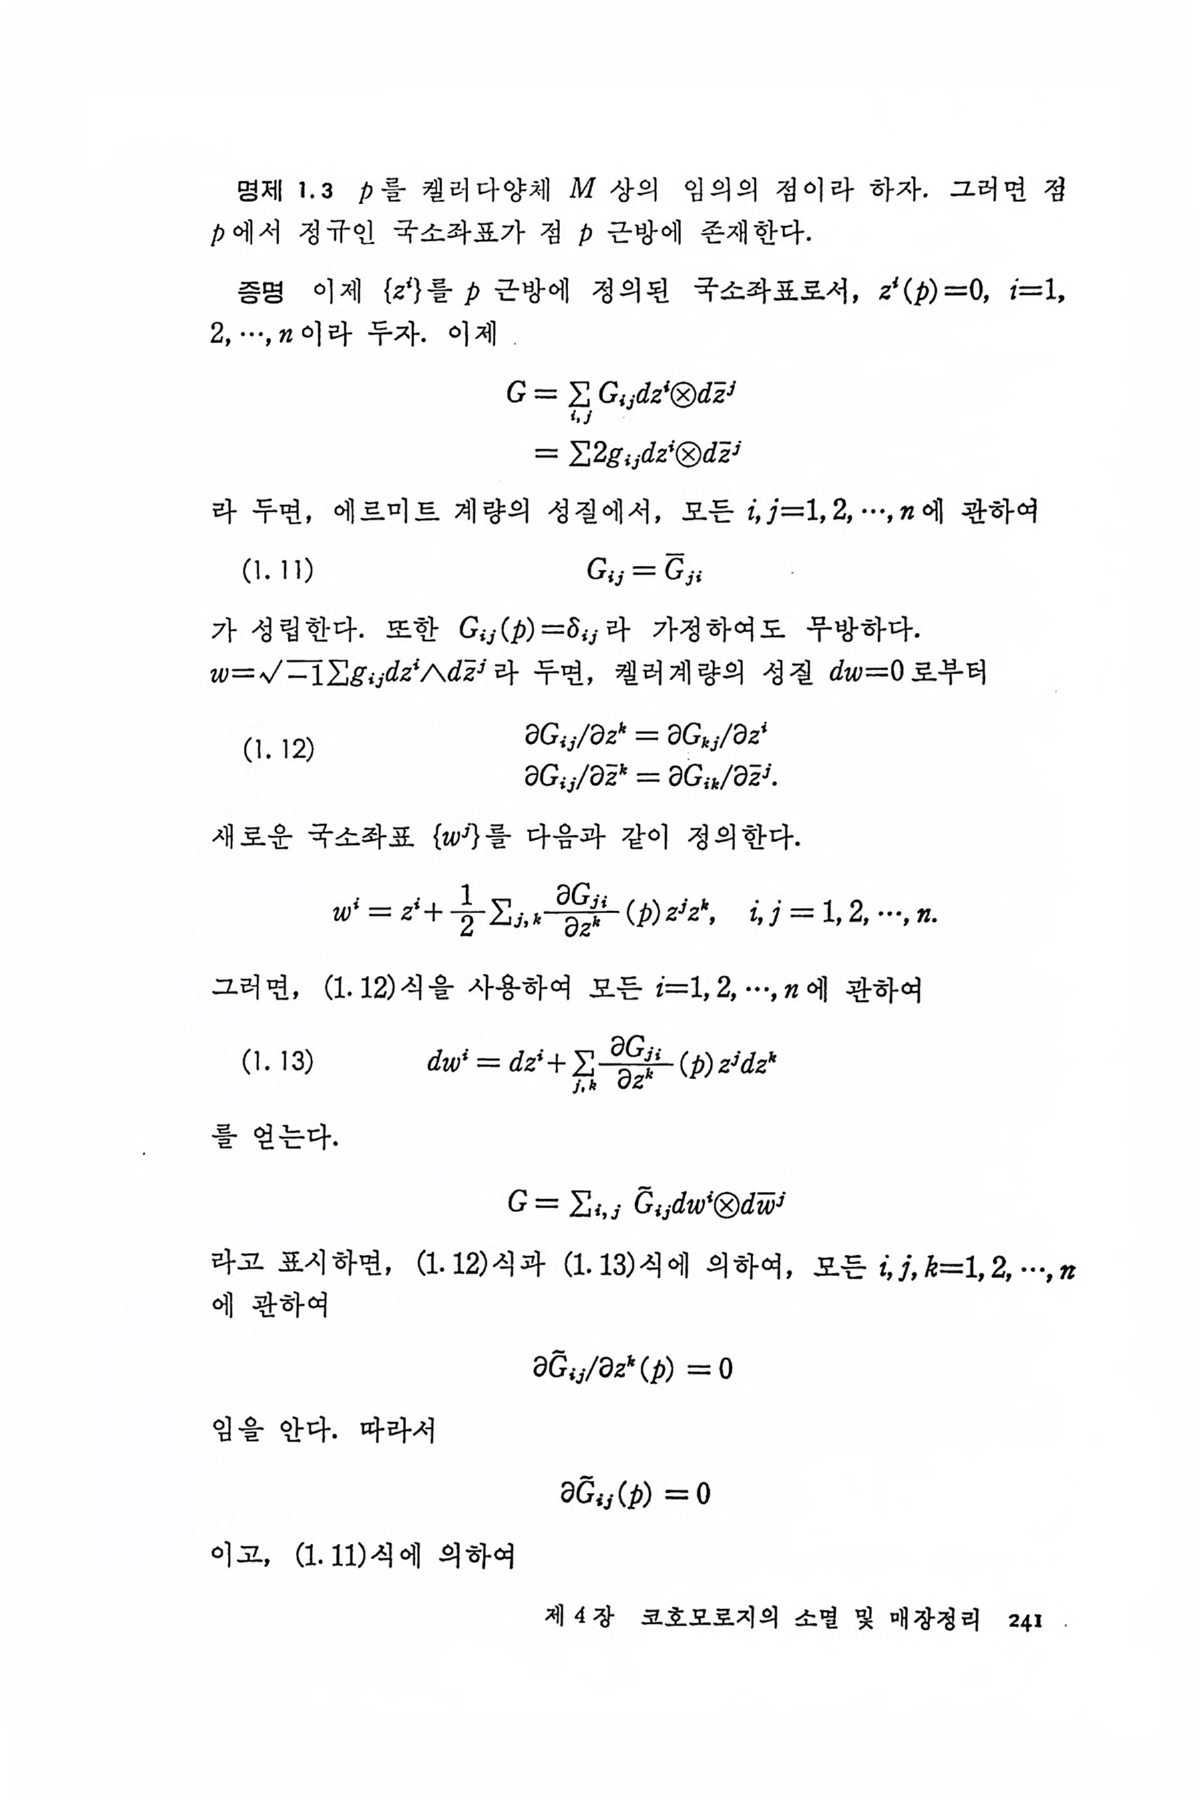 명제 1.3 p를 켈러다양체 M 상의 임의의 점이라 하자. 그러면 점
p에서 정규인 국소좌표가 점 p 근방에 존재한다.
증명 이제 {zⁱ}를 p 근방에 정의된 국소좌표로서, zⁱ(p)=0, i=1,
2, ⋯, n이라 두자. 이제
G = ∑_{i,j} G_{ij}dzⁱ⊗dz̄ʲ
= ∑2g_{ij}dzⁱ⊗dz̄ʲ
라 두면, 에르미트 계량의 성질에서, 모든 i, j=1, 2, ⋯, n에 관하여
(1. 11) G_{ij} = G̅_{ji}
가 성립한다. 또한 G_{ij}(p)=δ_{ij}라 가정하여도 무방하다.
w=√−1∑g_{ij}dzⁱ∧dz̄ʲ라 두면, 켈러계량의 성질 dw=0로부터
(1. 12) ∂G_{ij}/∂zᵏ = ∂G_{kj}/∂zⁱ
∂G_{ij}/∂z̄ᵏ = ∂G_{ik}/∂z̄ʲ.
새로운 국소좌표 {wʲ}를 다음과 같이 정의한다.
wⁱ = zⁱ + 1/2 ∑_{j,k} ∂G_{ji}/∂zᵏ (p) zʲzᵏ, i, j = 1, 2, ⋯, n.
그러면, (1. 12)식을 사용하여 모든 i=1, 2, ⋯, n에 관하여
(1. 13) dwⁱ = dzⁱ + ∑_{j,k} ∂G_{ji}/∂zᵏ (p) zʲdzᵏ
를 얻는다.
G = ∑_{i,j} G̃_{ij}dwⁱ⊗dw̄ʲ
라고 표시하면, (1. 12)식과 (1. 13)식에 의하여, 모든 i, j, k=1, 2, ⋯, n
에 관하여
∂G̃_{ij}/∂zᵏ(p) = 0
임을 안다. 따라서
∂G̃_{ij}(p) = 0
이고, (1. 11)식에 의하여
제 4 장 코호모로지의 소멸 및 매장정리 241